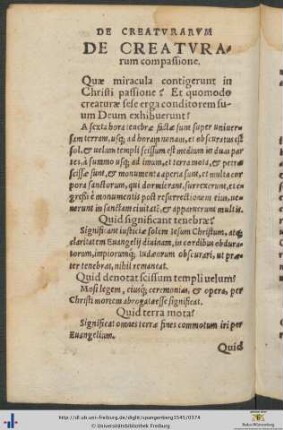 DE CREATVRARVM
DE CREATVRA-
rum compassione.
Quæ miracula contigerunt in
Christi passione? Et quomodo
creaturæ sese erga conditorem su-
um Deum exhibuerunt?
A sexta hora tenebræ factæ sunt super univer-
sam terram, usq; ad horam nonam, et obscuratus est
sol, & uelum templi scissum est medium in duas par
tes, à summo usq; ad imum, et terra mota, & petræ
scissæ sunt, & monumenta aperta sunt, et multa cor
pora sanctorum, qui dormierant, surrexerunt, et e-
gressi è monumentis post resurrectionem eius, ue-
nerunt in sanctam ciuitatē, & apparuerunt multis.
Quid significant tenebræ?
Significant iusticiæ solem Iesum Christum, atq;
claritatem Euangelij diuinam, in cordibus obdura-
torum, impiorumq; Iudæorum obscurari, ut præ-
ter tenebras, nihil remaneat.
Quid denotat scissum templi uelum?
Mosi legem, eiusq; ceremonias, & opera, per
Christi mortem abrogatas esse significat.
Quid terra mota?
Significat omnes terræ fines commotum iri per
Euangelium.
Quid
http://dl.ub.uni-freiburg.de/diglit/spangenberg1545/0374
© Universitätsbibliothek Freiburg
Baden-Württemberg